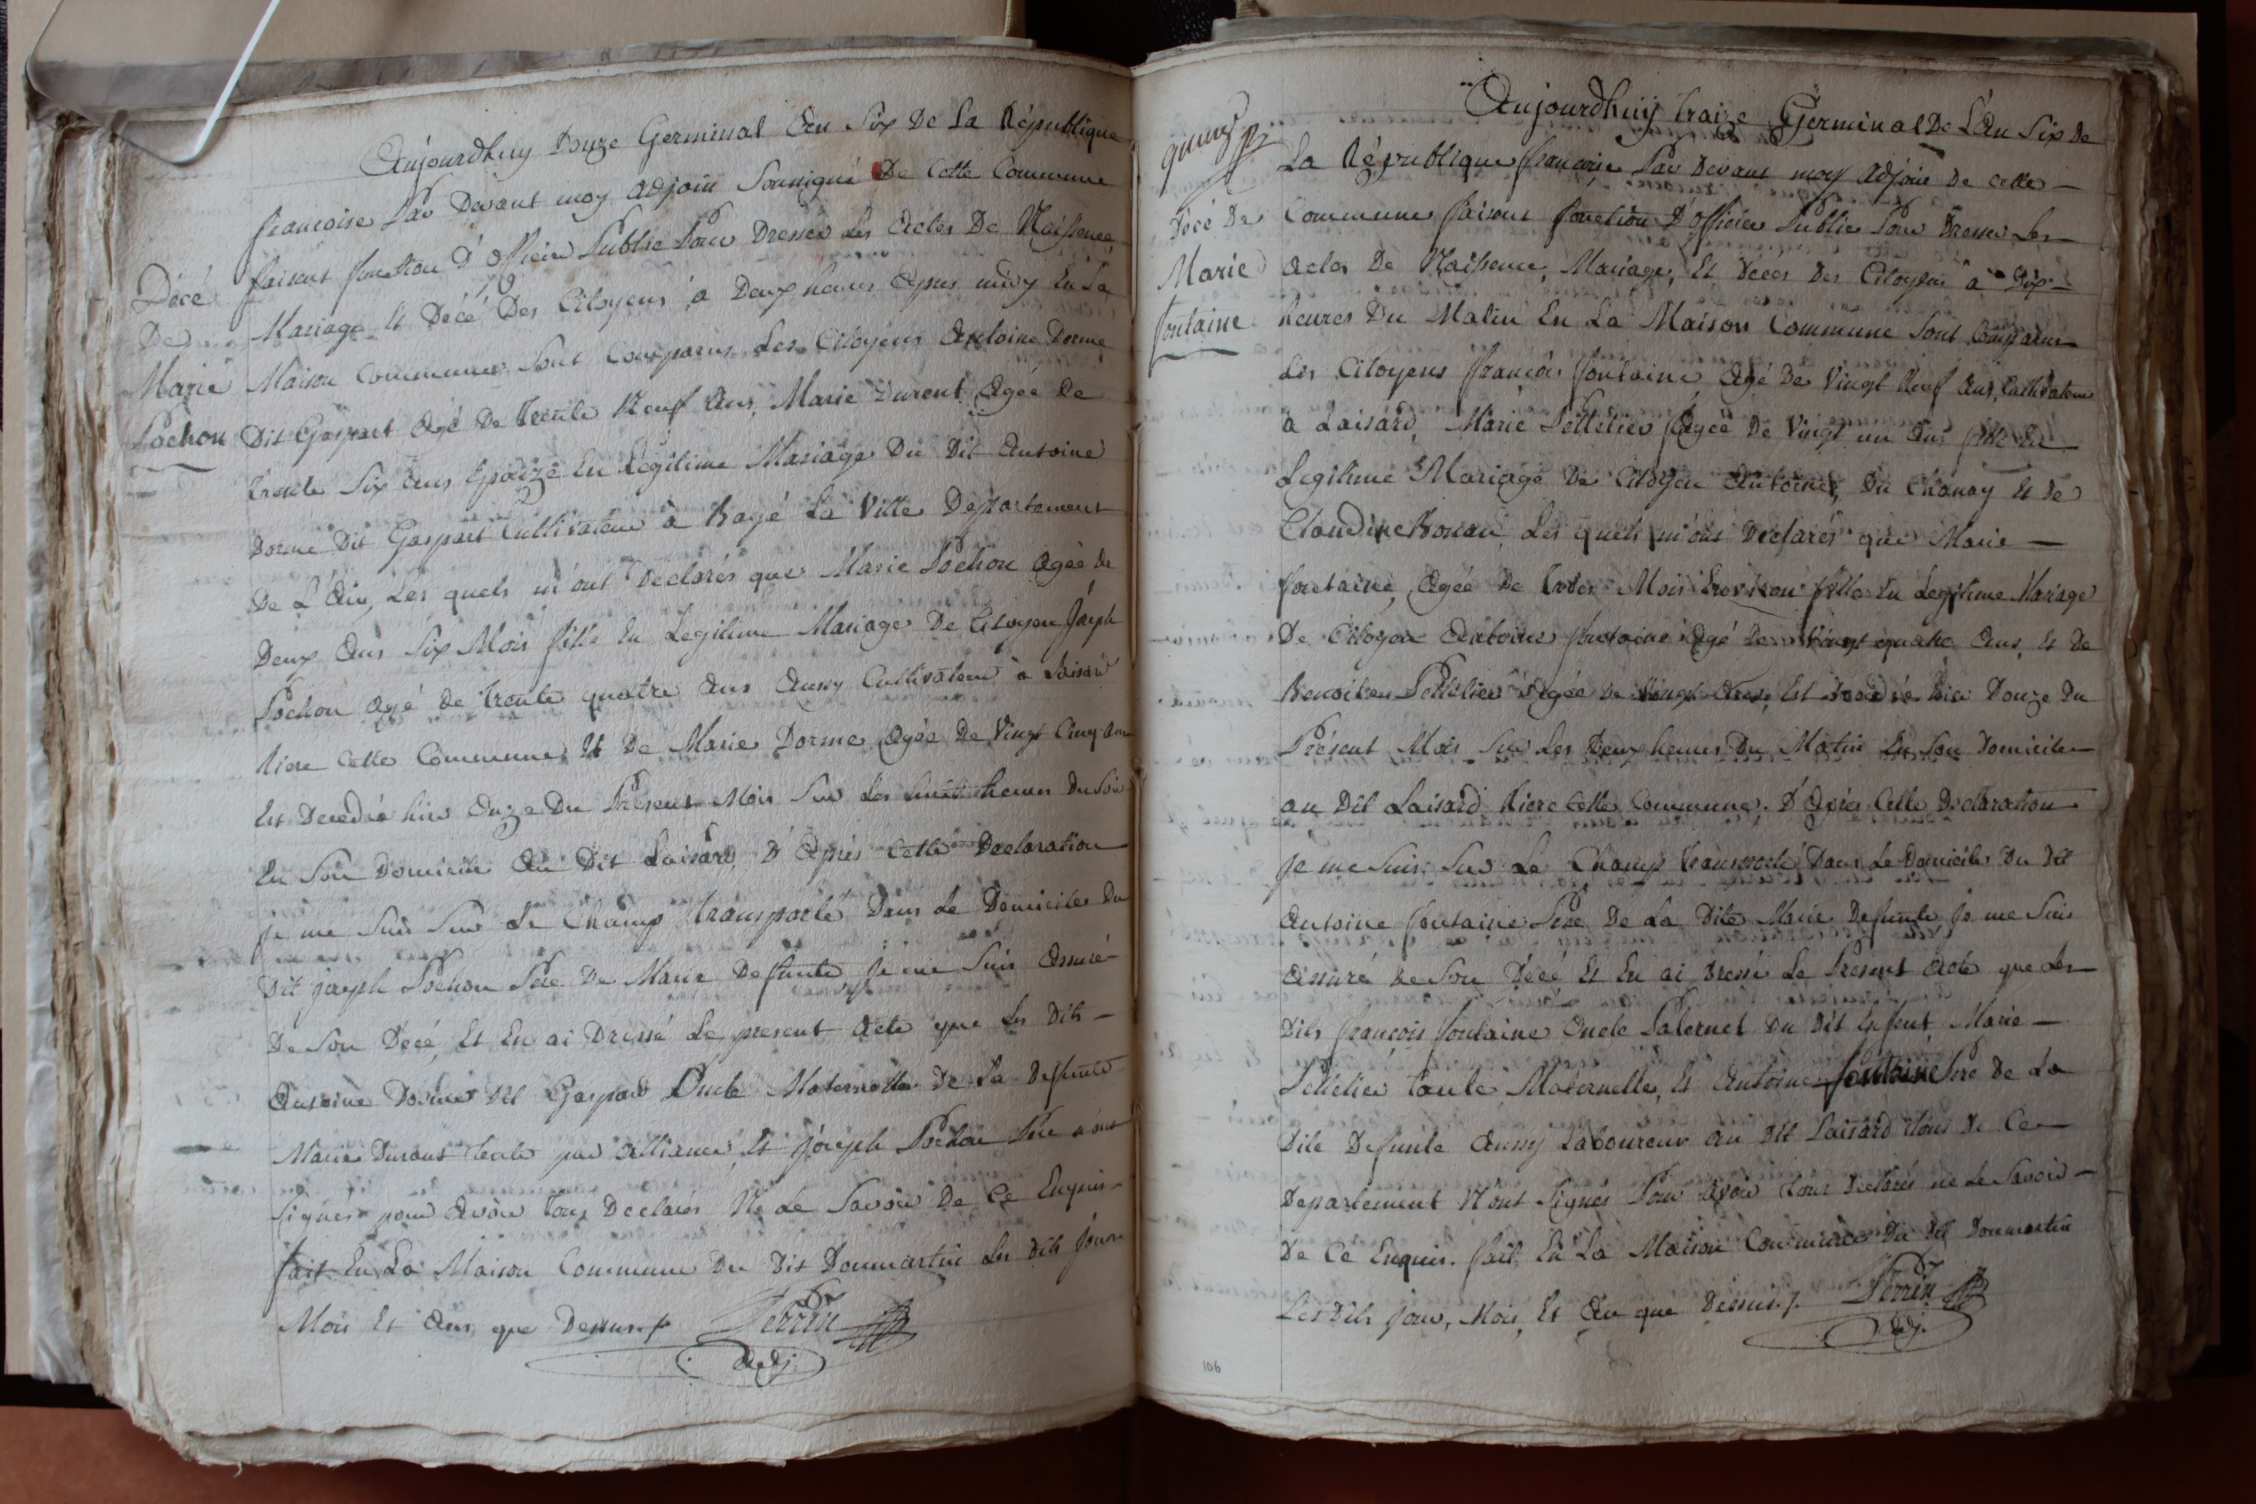 Aujourdhuy Douze Germinal An Six De La République
francoise Par Devant moy adjoin Soussigné De Cette Commune
faisant fonction D'officier Public Pour Dresser Les Actes De Naissence,
Décé
Mariage Et Décé Des Citoyens, a Deux heures Apres midy En La
De
Maison Commune Sont Comparus Les Citoyens Antoine Dorme
Marie
Dit Gaspart Agé De Trente Neuf Ans, Marie Durent Agée De
Pochon
trente Six Ans Epouze En Légitime Mariage Du Dit Antoine
Dorme Dit Gaspart Cultivateur a Bagé La Ville Département
De L'Ain, Les quels m'ont Declarés que Marie Pochon Agée de
Deux Ans Six Mois fille En Legitime Mariage De Citoyen Joseph
Pochon Agé de Trente quatre Ans Aussy Cultivateur a Laisard
Riere Cette Commune Et De Marie Dorme Agée De Vingt Cinq Ans
Est Decedré hier Onze Du Présent Mois Sur Les huit heures Du Soir
En Son Domicile Au Dit Laisard, D'Après Cette Declaration
Je me Suis Sur Le Champ Transporté Dans Le Domicile Du
Dit Joseph Pochon Père De Marie Defunte, Je me Suis Assuré
De Son Décé, Et En ai Dressé Le present Acte que Les Dits
Antoine Dorme Dit Gaspard Oncle Maternelle De La Defunte
Marie Durant tante par alliance, Et Joseph Pochon Père n'ont
Signés pour Avoir Tous Declarés Ne Le Savoir De Ce Enquis
fait En La Maison Commune Du Dit Dommartin Les Dits Jour
Mois Et Ans que Dessus./.
Perrin
Adj.
Aujourdhuy traize Germinal De L'An Six De
La République francoise Par Devant moy Adjoin De cette
Commune faisant fonction D'officier Public Pour Dresser Les
Décé De
Actes De Naissence, Mariage, Et Décés Des Citoyens a Dix
Marie
heures Du Matin En La Maison Commune Sont Comparus
fontaine
Les Citoyens françois fontaine Agé De Vingt Neuf Ans Cultivateur
a Laisard, Marie Pelletier Agée De Vingt un Ans fille En
Legitime Mariage De Citoyen Antoine, Du Chanay Et De
Claudine Les quels m'ont Declarés que Marie
fontaine, Agée De Mois Environ fille En Legitime Mariage
De Citoyen Antoine fontaine Agé De Vingt quatre Ans, Et De
Benoite Pelletier Agée De Vingt Et Decedré hier Douze Du
Présent Mois Sur Les Deux heures Du Matin En Son Domicile
au Dit Laisard Riere Cette Commune. D'Après Cette Declaration
Je me Suis Sur Le Champ Transporté Dans Le Domicile Du Dit
Antoine fontaine Père De La Dite Marie Defunte Je me Suis
Assuré De Son Décé Et En ai Dressé Le Present Acte que Les
Dits françois fontaine Oncle Paternel Du Dit Enfent Marie
Pelletier tante Maternelle, Et Antoine fontaine Père De La
Dite Defunte Aussy Laboureur Au Dit Laisard Tous De Ce
Departement N'ont Signés Pour Avoir Tous Declarés ne Le Savoir
De Ce Enquis. fait En La Maison Commune Du Dit Dommartin
Les Dits Jour, Mois, Et An que Dessus./.
Perrin
Adj.
106